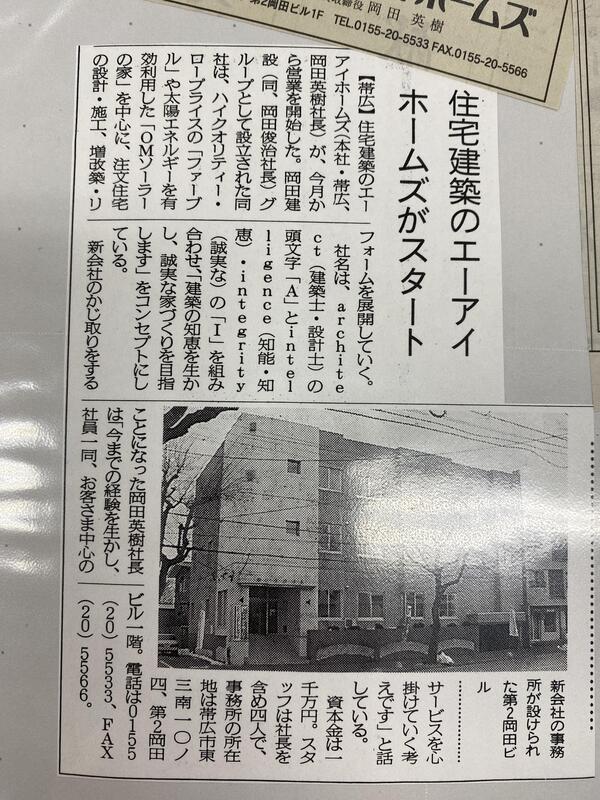 ホームズ
取締役 岡田英樹
第2岡田ビル1F TEL.0155-20-5533 FAX.0155-20-5566
住宅建築のエーアイ
ホームズがスタート
【帯広】住宅建築のエー
アイホームズ（本社・帯広、
岡田英樹社長）が、今月か
ら営業を開始した。岡田建
設（同、岡田俊治社長）グ
ループとして設立された同
社は、ハイクオリティー・
ロープライスの「ファーブ
ル」や太陽エネルギーを有
効利用した「OMソーラー
の家」を中心に、注文住宅
の設計・施工、増改築・リ
フォームを展開していく。
社名は、archite
ct（建築士・設計士）の
頭文字「A」とintel
ligence（知能・知
恵）・integrity
（誠実な）の「I」を組み
合わせ、「建築の知恵を生か
し、誠実な家づくりを目指
します」をコンセプトにし
ている。
新会社のかじ取りをする
ことになった岡田英樹社長
は「今までの経験を生かし、
社員一同、お客さま中心の
サービスを心
掛けていく考
えです」と話
している。
資本金は一
千万円。スタ
ッフは社長を
含め四人で、
事務所の所在
地は帯広市東
三南一〇ノ
四、第2岡田
ビル一階。電話は0155
（20）5533、FAX
（20）5566。
新会社の事務
所が設けられ
た第2岡田ビ
ル